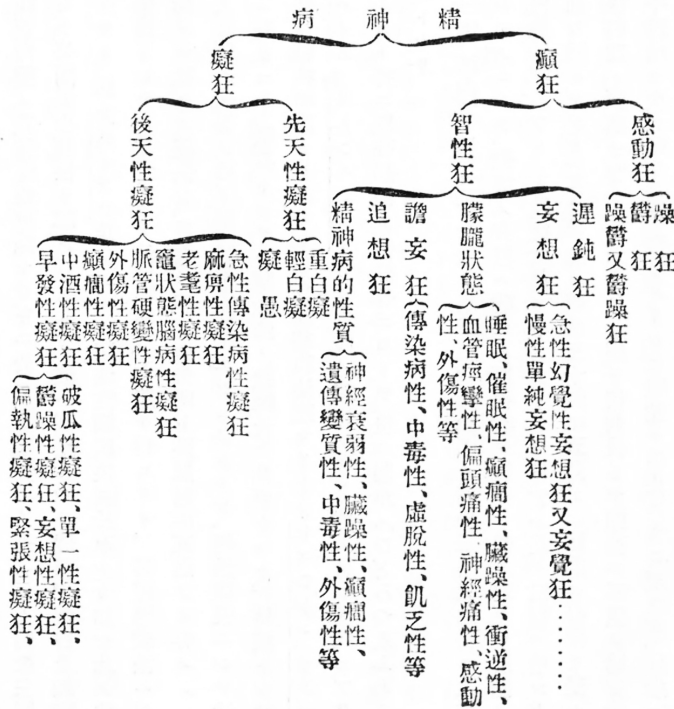 精神病
癲狂
感動狂
躁狂
欝狂
躁欝又欝躁狂
智性狂
遲鈍狂
妄想狂
急性幻覺性妄想狂又妄覺狂………
慢性單純妄想狂
朦朧狀態
睡眠、催眠性、癲癇性、臟躁性、衝逆性、
血管痙攣性、偏頭痛性、神經痛性、感動
性、外傷性等
譫妄狂
傳染病性、中毒性、虛脫性、飢乏性等
追想狂
精神病的性質
神經衰弱性、臟躁性、癲癇性、
遺傳變質性、中毒性、外傷性等
癡狂
先天性癡狂
重白癡
輕白癡
癡愚
後天性癡狂
急性傳染病性癡狂
麻痹性癡狂
老耄性癡狂
竈狀態腦病性癡狂
脈管硬變性癡狂
外傷性癡狂
癲癇性癡狂
中酒性癡狂
早發性癡狂
破瓜性癡狂、單一性癡狂、
欝躁性癡狂、妄想性癡狂、
偏執性癡狂、緊張性癡狂、